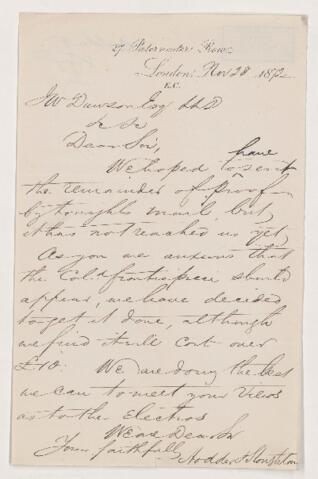 27 Paternoster Row
London, Nov 28 1872
E.C.
JW Dawson Esq LLD
&c &c
Dear Sir,
We hoped to have sent
the remainder of proof
by tonights mail, but
it has not reached us yet
As you are anxious that
the Cold frontispiece should
appear, we have decided
to get it done, although
we find it will cost over
£10. We are doing the best
we can to meet your views
as to the Electros
We are Dear Sir
Yours faithfully
Hodder & Stoughton